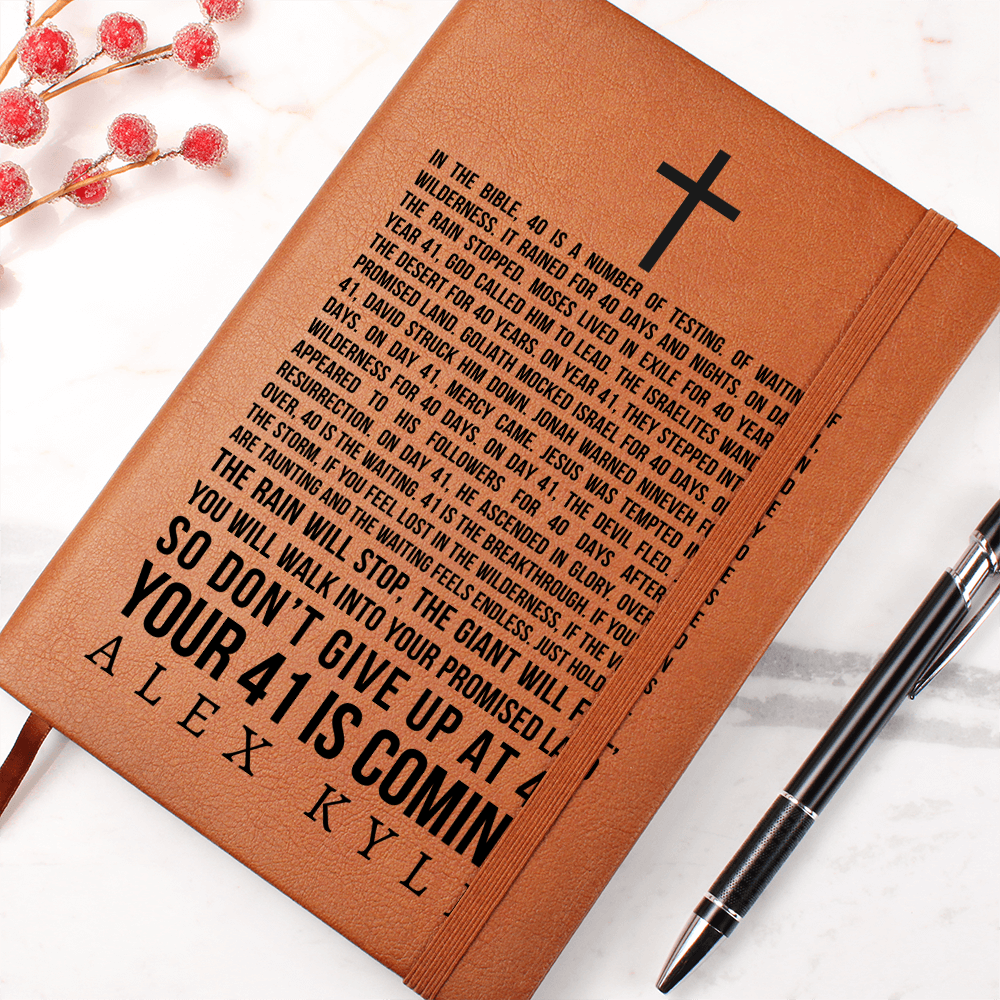 IN THE BIBLE, 40 IS A NUMBER OF TESTING. OF
WILDERNESS. IT RAINED FOR 40 DAYS AND NIGHTS. ON
THE RAIN STOPPED. MOSES LIVED IN EXILE FOR 40
YEAR 41, GOD CALLED HIM TO LEAD. THE ISRAELITES
THE DESERT FOR 40 YEARS. ON YEAR 41, THEY STEPPED
PROMISED LAND. GOLIATH MOCKED ISRAEL FOR 40 DAYS.
41, DAVID STRUCK HIM DOWN. JONAH WARNED NINEVEH
DAYS. ON DAY 41, MERCY CAME. JESUS WAS TEMPTED
WILDERNESS FOR 40 DAYS. ON DAY 41, THE DEVIL FLED.
APPEARED TO HIS FOLLOWERS FOR 40 DAYS AFTER
RESURRECTION. ON DAY 41 HE ASCENDED IN GLORY. OVER
OVER, 40 IS THE WAITING. 41 IS THE BREAKTHROUGH. IF
THE STORM, IF YOU FEEL LOST IN THE WILDERNESS, IF THE
ARE TAUNTING AND THE WAITING FEELS ENDLESS, JUST HOLD
THE RAIN WILL STOP, THE GIANT WILL
YOU WILL WALK INTO YOUR PROMISED
SO DON'T GIVE UP AT
YOUR 41 IS
ALEX